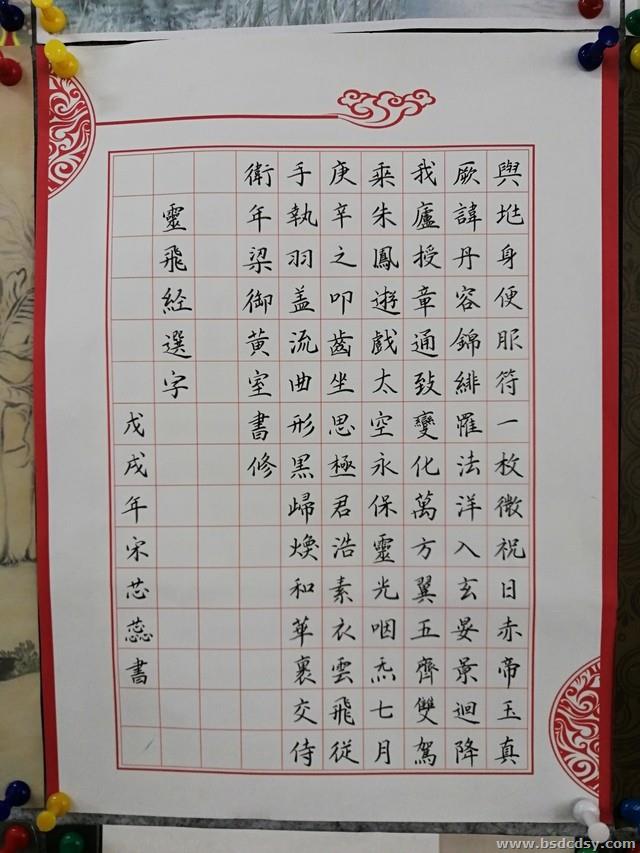 與兆身便服符一枚微祝日赤帝玉真
厥諱丹容錦緋羅法洋入玄晏景迴降
我廬授章通致變化萬方翼五齊雙駕
乘朱鳳遊戲太空永保靈光咽炁七月
庚辛之叩齒坐思極君浩素衣雲飛從
手執羽盖流曲形黑歸煥和革裏交侍
衛年梁御黄室書修
靈飛経選字
戊戌年宋芯蕊書
www.bsdcdsy.com